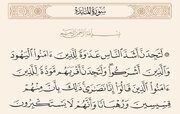 سورة المائدة
بسم الله الرحمن الرحيم
لتجدن أشد الناس عداوة للذين ءامنوا اليهود
والذين أشركوا ولتجدن أقربهم مودة للذين
ءامنوا الذين قالوا إنا نصارى ذلك بأن منهم
قسيسين ورهبانا وأنهم لا يستكبرون